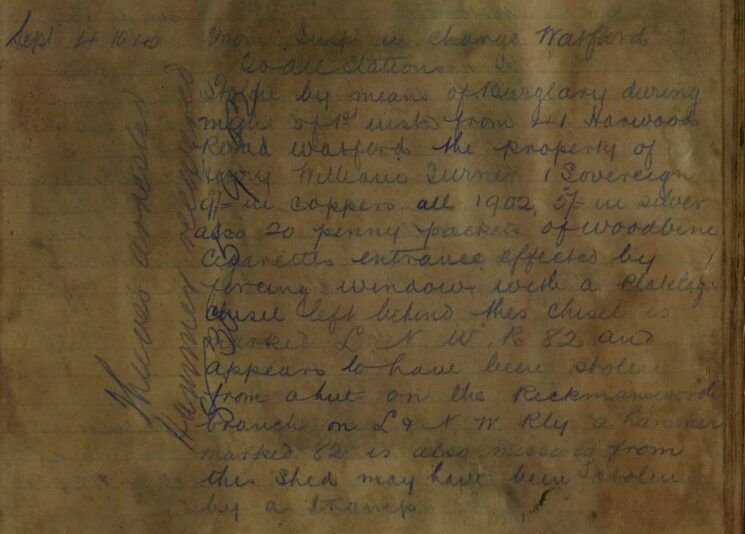 Sept 4 10.10 From Supt in charge Watford
To All Stations
Stolen by means of Burglary during
night of 1st inst from 41 Harwoods
Road Watford the property of
Harry William Turner 1 Sovereign
9/- in coppers all 1902, 5/- in silver
also 20 penny packets of woodbine
Cigarettes entrance effected by
forcing window with a Platelayers
chisel left behind this chisel is
marked L & N. W. R 82 and
appears to have been stolen
from a hut on the Rickmansworth
Branch on L & N. W. Rly a hammer
marked 82 is also missing from
this Shed may have been stolen
by a tramp
Thieves arrested
Hammer recovered